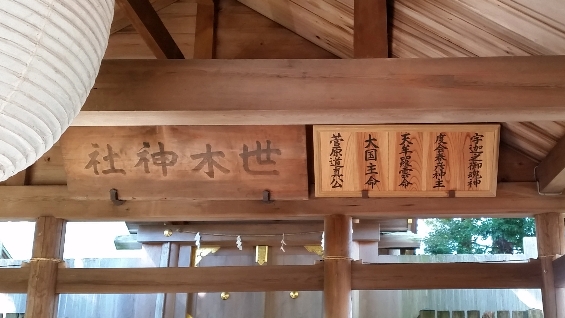 世木神社
宇迦之御魂神
度会春彦神主
天牟羅雲命
大国主命
菅原道真公